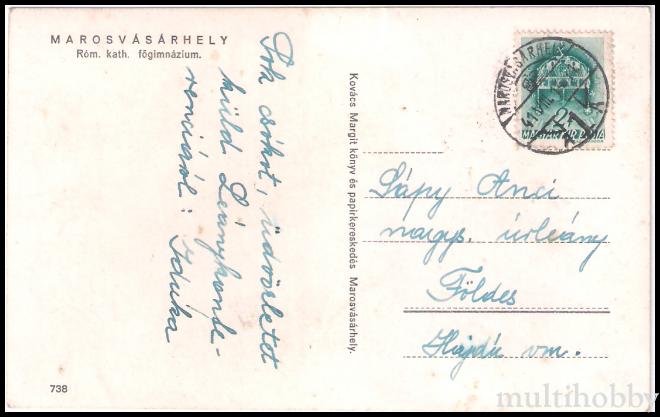 MAROSVÁSÁRHELY
Róm. kath. főgimnázium.
Sok csókot, üdvözletet
küld Leánykonfe-
renciáról: Iduka
Kovács Margit könyv és papirkereskedés Marosvásárhely.
MAROSVÁSÁRHELY
MAGYAR POSTA
Sápy Anci
nagys. úrleány
Földes
Hajdu vm.
738
multihobby